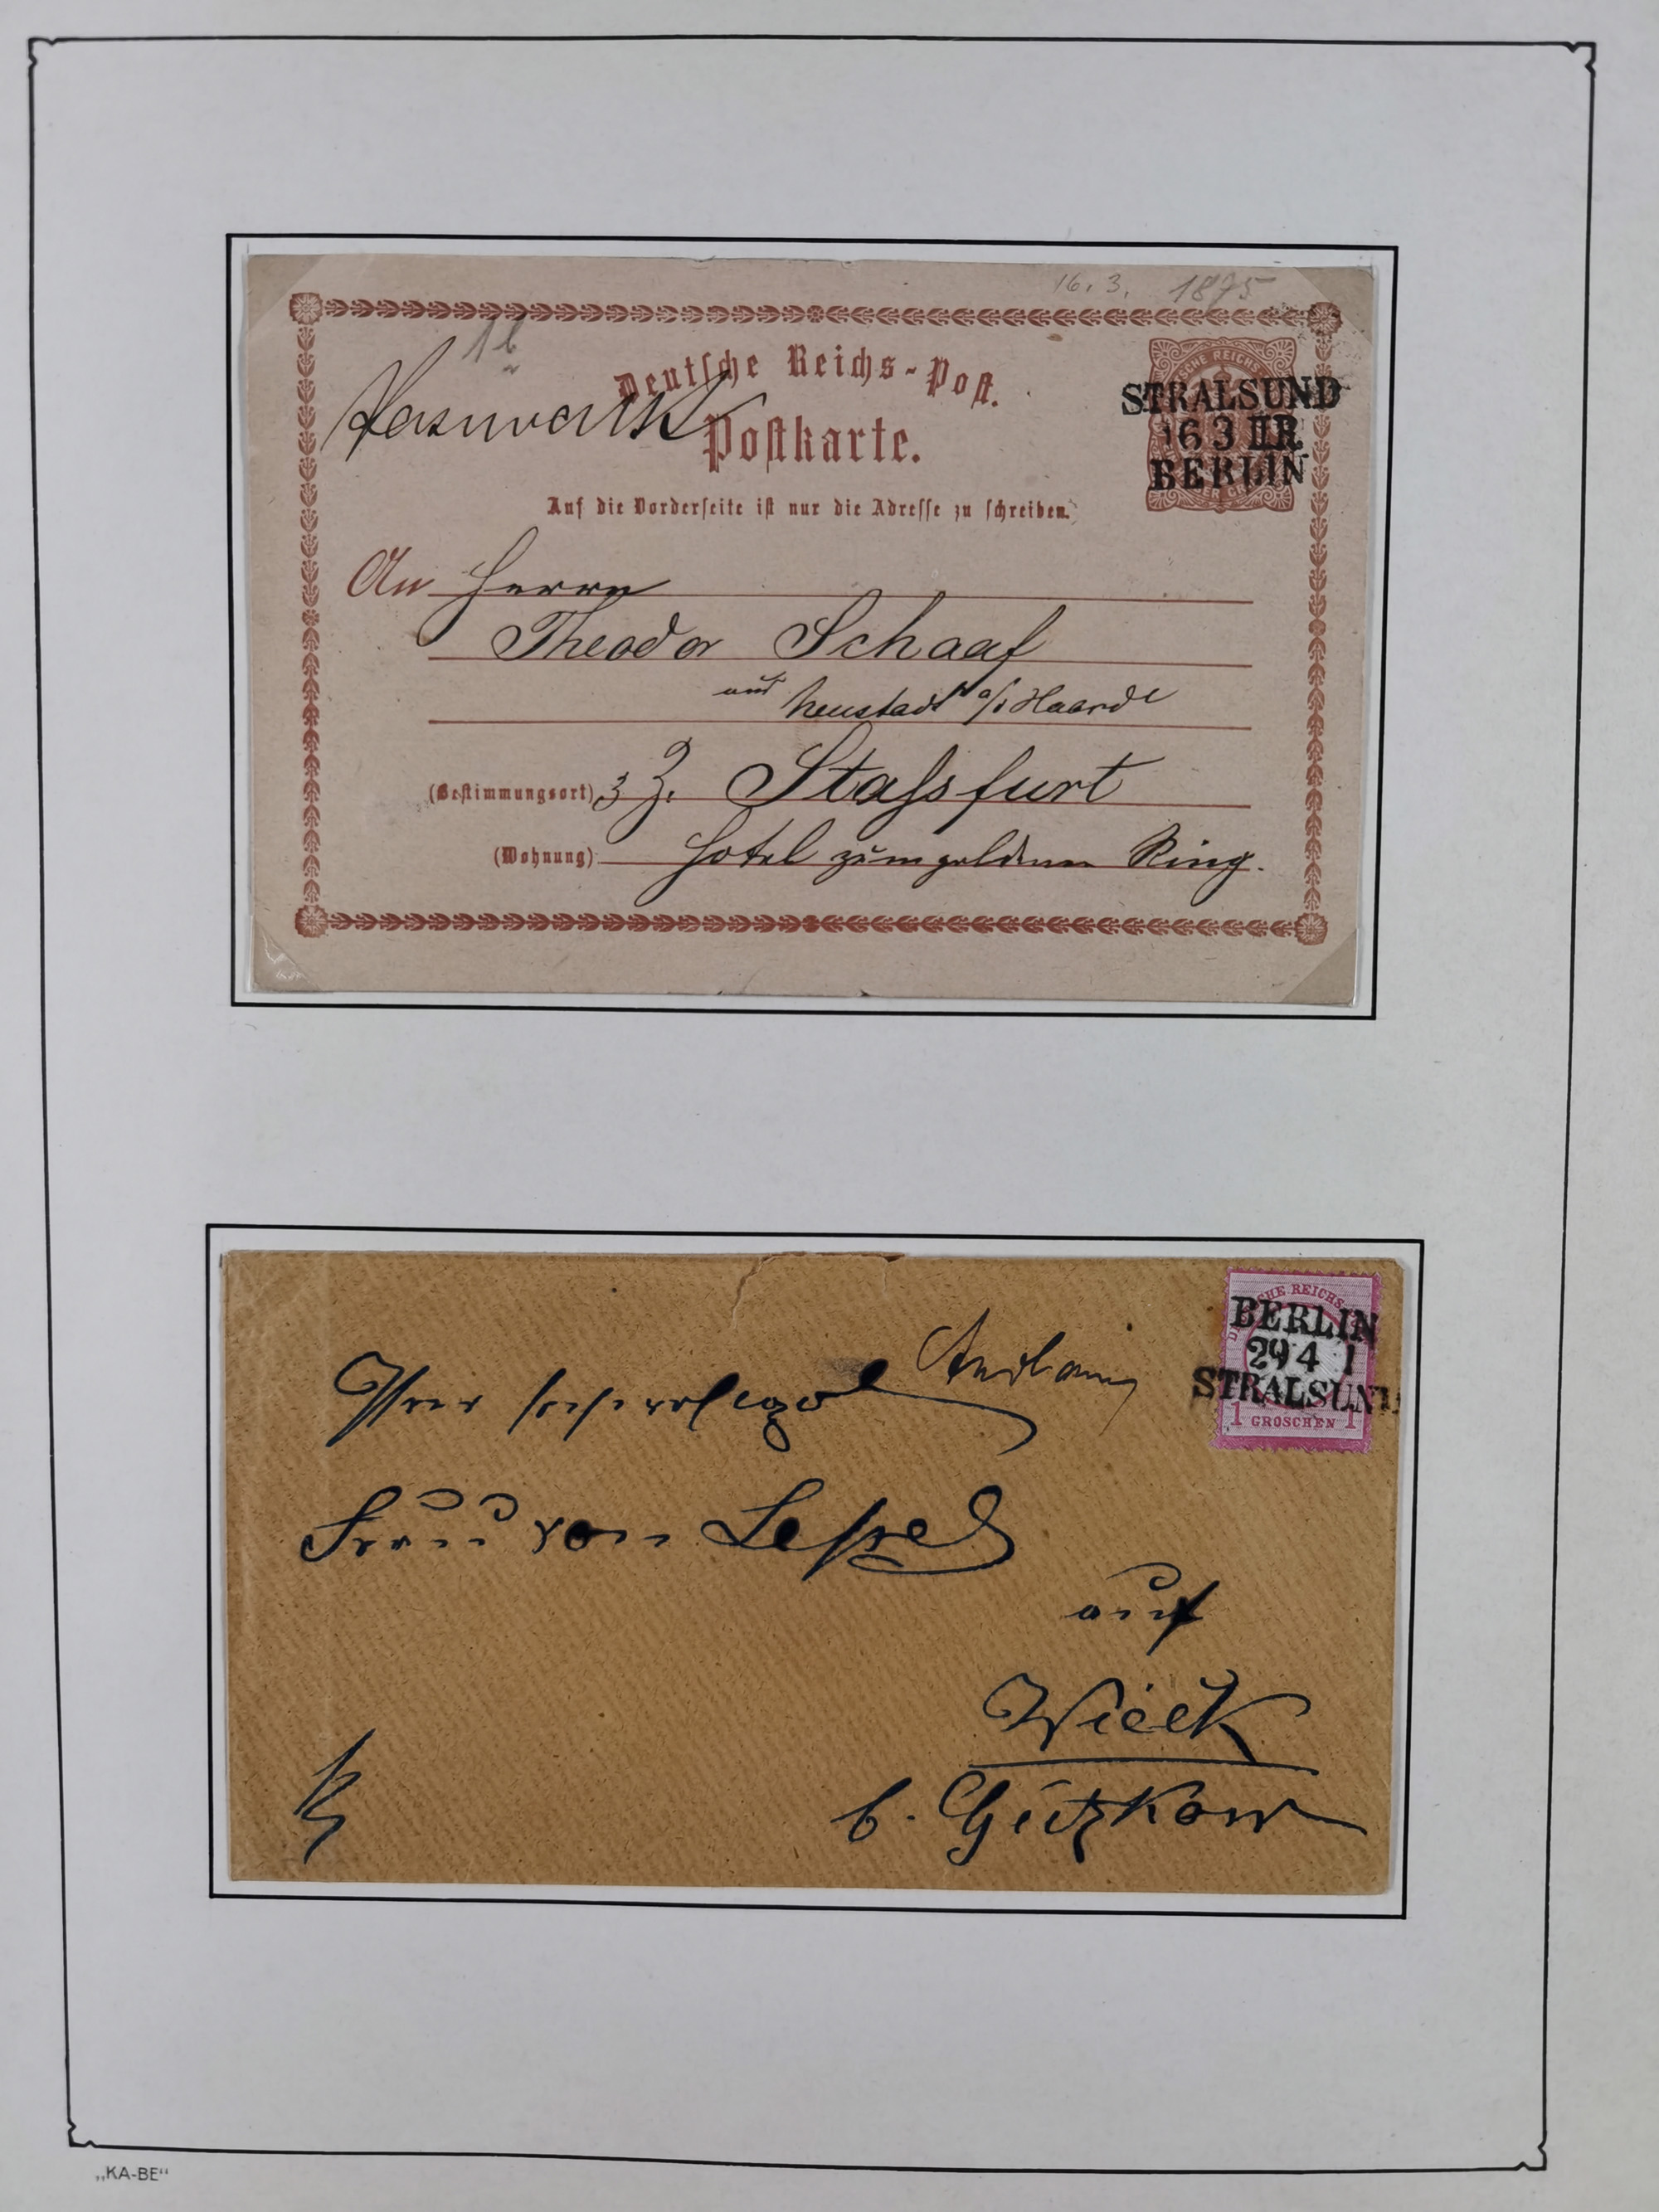 16. 3. 1875
Deutsche Reichs-Post.
Pasewalk
Postkarte.
STRALSUND
16 3 II R.
BERLIN
Auf die Vorderseite ist nur die Adresse zu schreiben.
An Herrn
Theodor Schaaf
aus Neustadt a/d Haardt
(Bestimmungsort) z. Z. Stassfurt
(Wohnung) Hotel zum goldenen Ring.
BERLIN
29 4 I
STRALSUND
1 GROSCHEN 1
Frau von Lepel
auf
Wieck
b. Gützkow
„KA-BE“